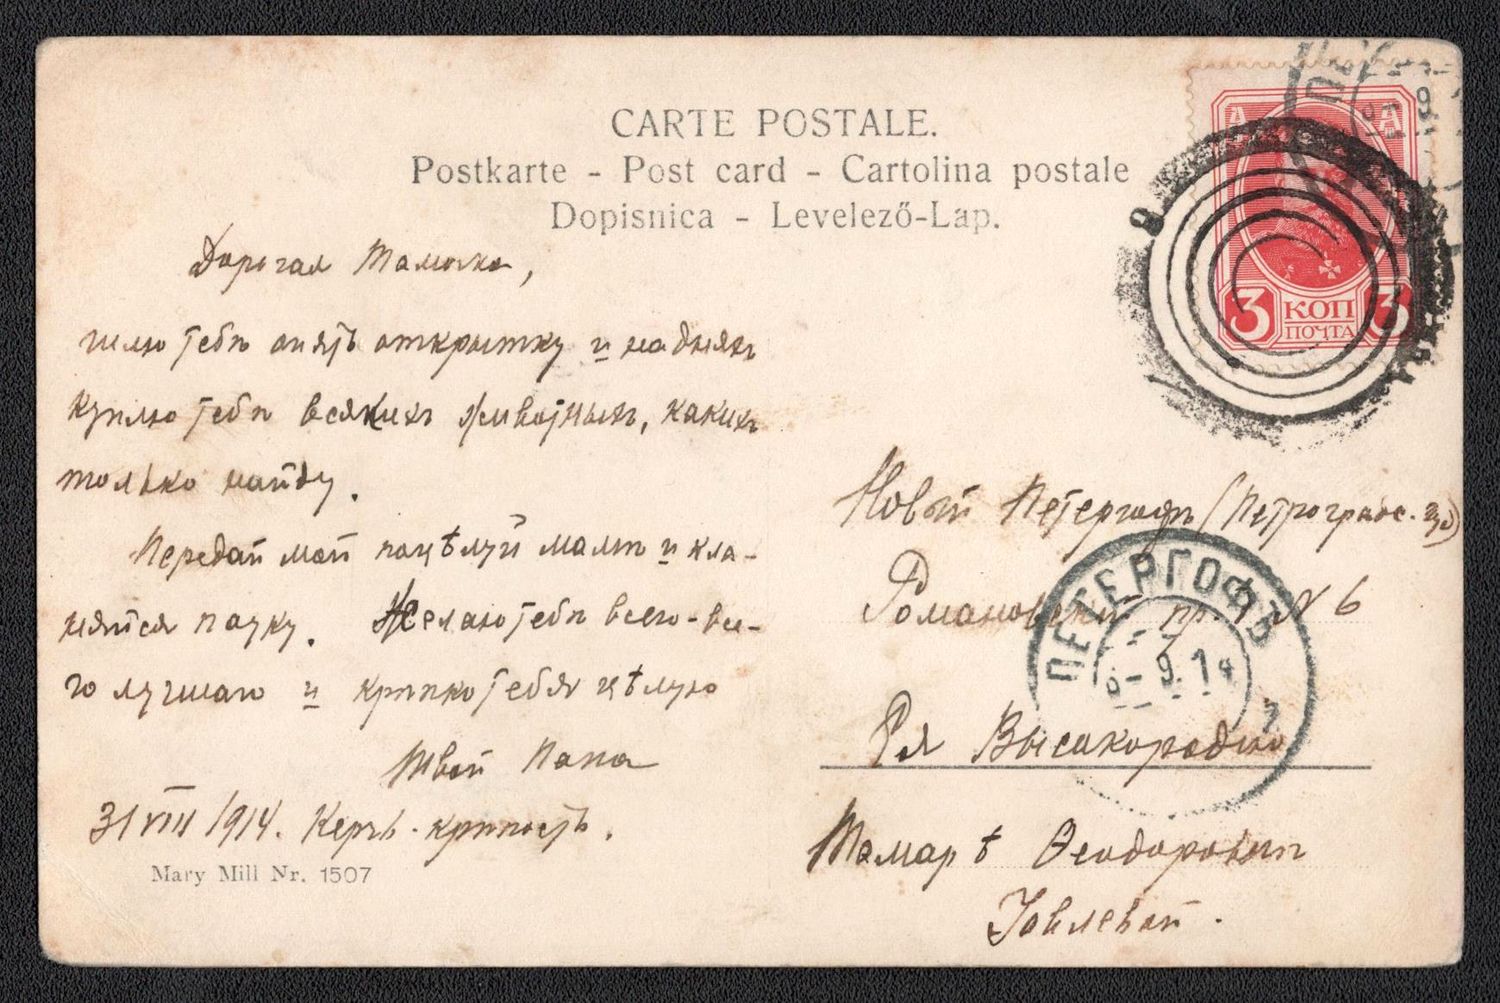 CARTE POSTALE.
Postkarte - Post card - Cartolina postale
Dopisnica - Levelező-Lap.
А А
3 КОП 3
ПОЧТА
Дорогая Тамочка,
шлю тебѣ опять открытку и на дняхъ
куплю тебѣ всякихъ животныхъ, какихъ
только найду.
Передай мой поцѣлуй мамѣ и кла-
няйся пауку. Желаю тебѣ всего-все-
го лучшаго и крѣпко тебя цѣлую
Твой Папа
31 VIII 1914. Керчь-крѣпость.
Mary Mill Nr. 1507
Новый Петергофъ (Петроградс. губ)
Романовскій пр. № 6
ПЕТЕРГОФЪ
9.14
Ея Высокородію
Тамарѣ Ѳеодоровнѣ